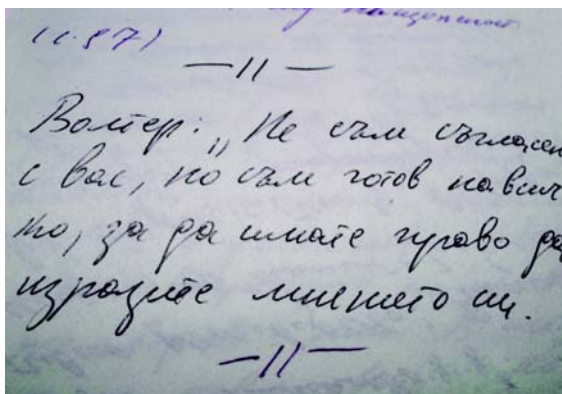 (с.87)
—//—
Волтер: „Не съм съгласен
с вас, но съм готов на всич
ко, за да имате право да
изразите мнението си.
—//—